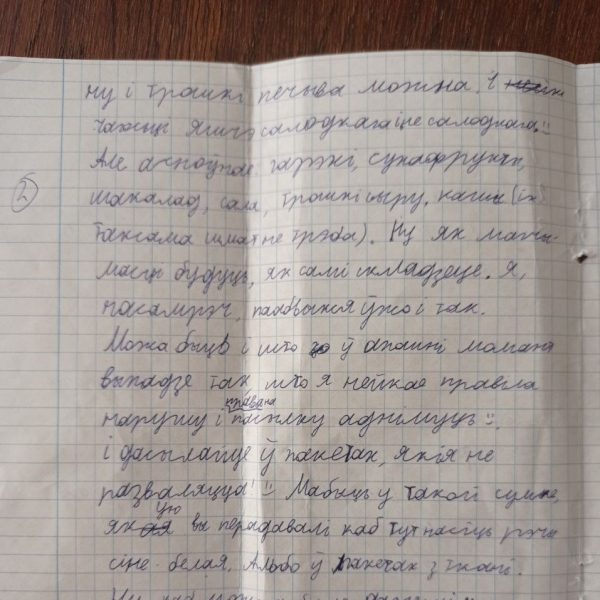 ну і трошкі печыва можна. І
чагось яшчэ салодкага і не салодкага. :)
Але асноўнае: гарэхі, сухафрукты,
шакалад, сала, трошкі сыру, кашы (іх
таксама шмат не трэба). Ну як магчы-
масць будуць, як самі складзеце. Я,
насамрэч, паабвыкся ўжо і так.
Можа быць і што ў апошні момант
выпадзе так, што я нейкае правіла
парушу і права на пасылку аднімуць :).
і дасылайце ў пакетах, якія не
разваляцца! :) Мабыць у такой сумке,
якую вы перадавалі каб тут насіць рэчы
сіне-белая. Альбо ў пакетах з ткані.
2